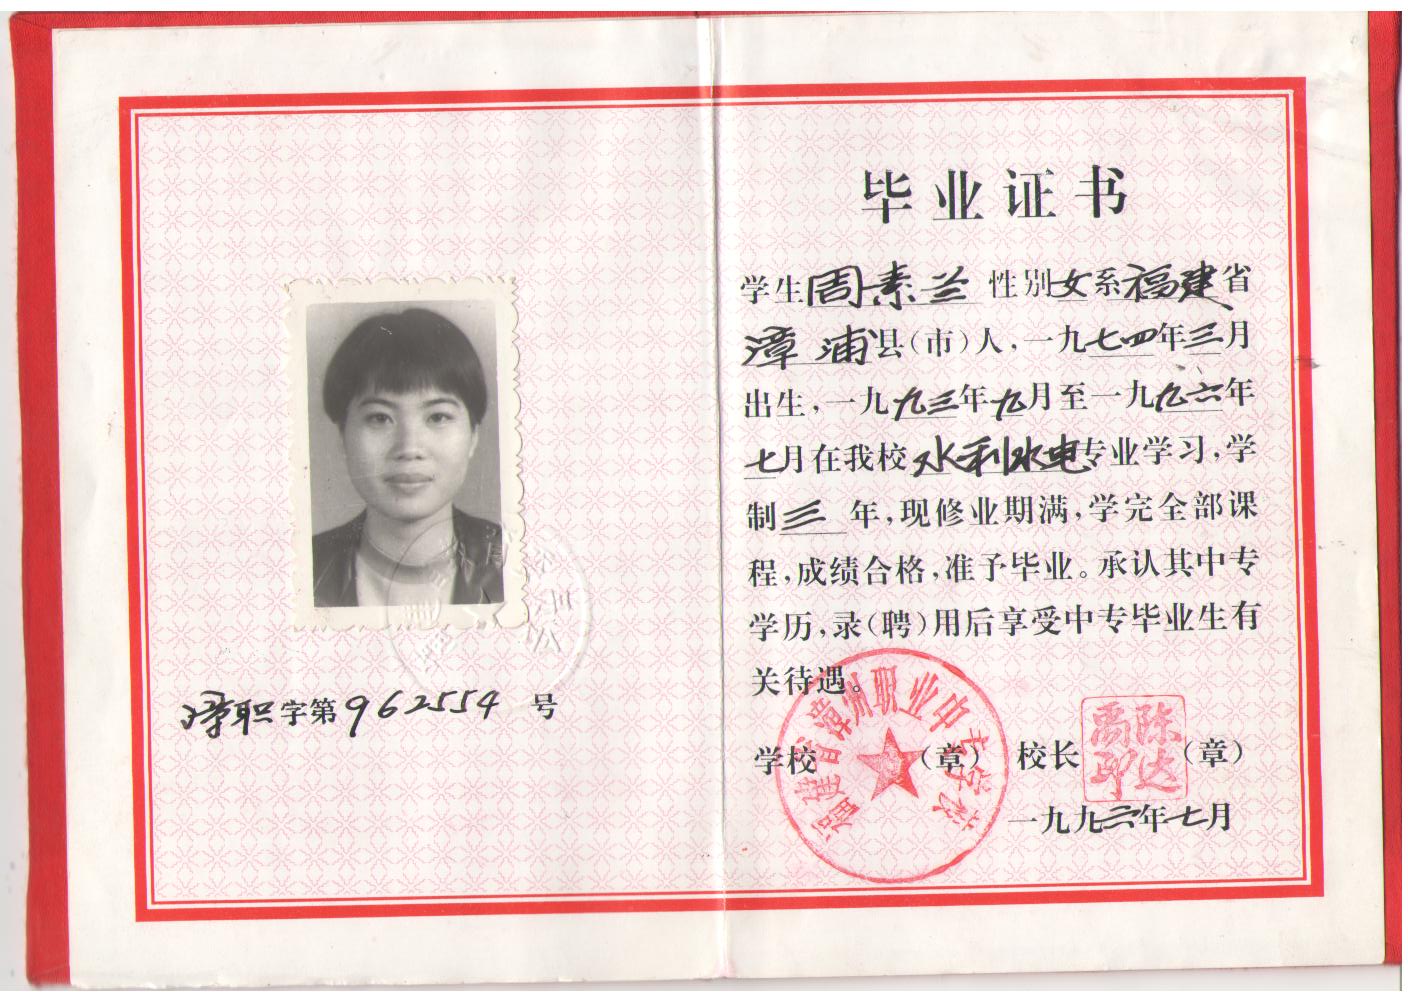 漳职字第962554号
毕业证书
学生周素兰 性别女系福建省
漳浦县(市)人,一九七四年三月
出生,一九九三年九月至一九九六年
七月在我校水利水电专业学习,学
制三年,现修业期满,学完全部课
程,成绩合格,准予毕业。承认其中专
学历,录(聘)用后享受中专毕业生有
关待遇。
福建省漳州职业中专学校
学校 (章) 校长 (章)
陈达禹印
一九九六年七月